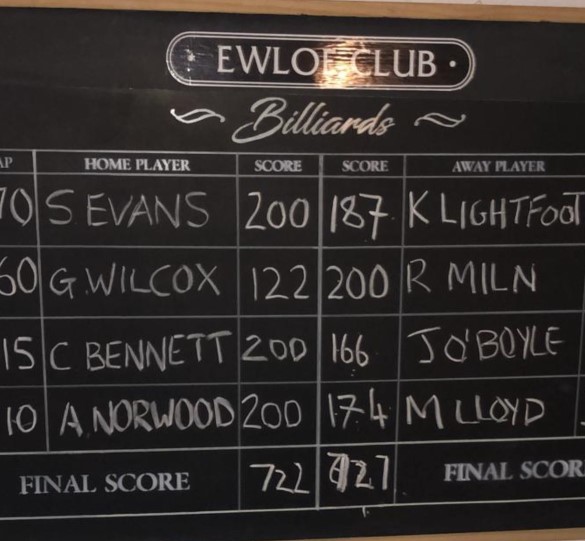 EWLOE CLUB
Billiards
AP HOME PLAYER SCORE SCORE AWAY PLAYER
70 S EVANS 200 187 K LIGHTFOOT
60 G. WILCOX 122 200 R MILN
15 C BENNETT 200 166 J O'BOYLE
10 A NORWOOD 200 174 M LLOYD
FINAL SCORE 722 727 FINAL SCOR